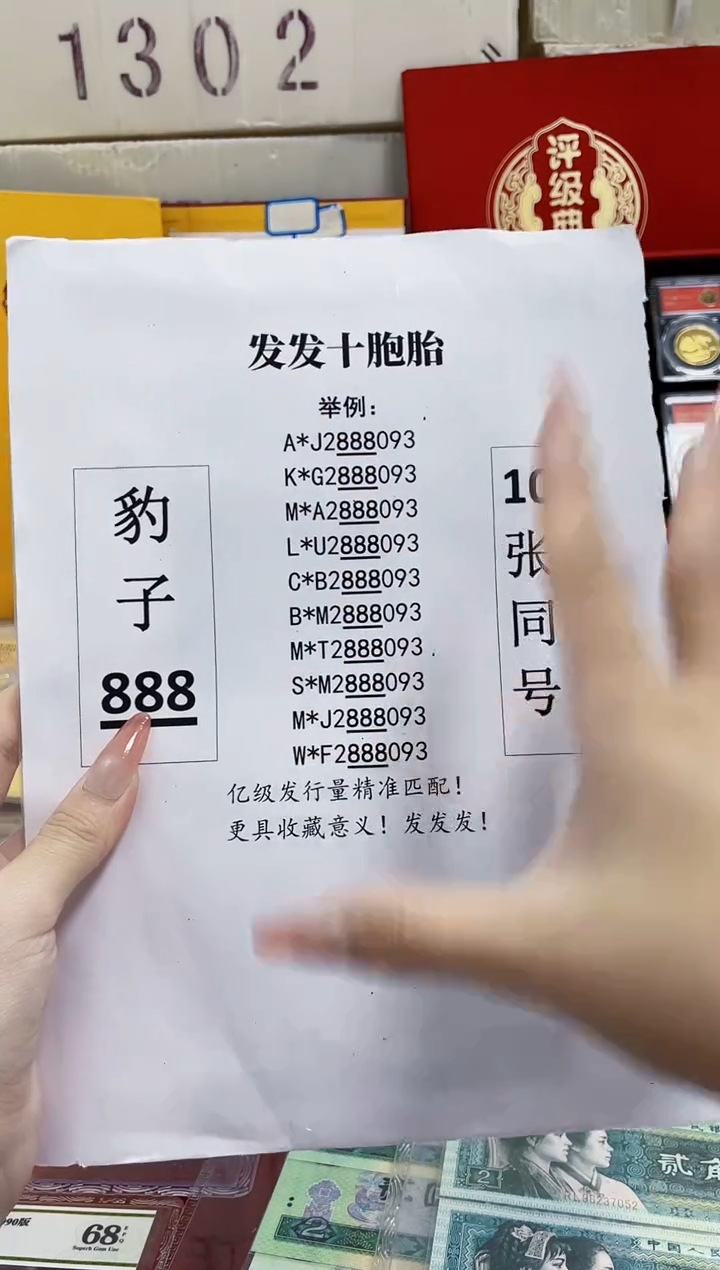 1302
评级典
发发十胞胎
举例：
A*J2888093
K*G2888093
M*A2888093
L*U2888093
C*B2888093
B*M2888093
M*T2888093
S*M2888093
M*J2888093
W*F2888093
豹
子
888
10
张
同
号
亿级发行量精准匹配！
更具收藏意义！发发发！
2
贰角
2
中国人民
90版
68
EPQ
Superb Gem Unc